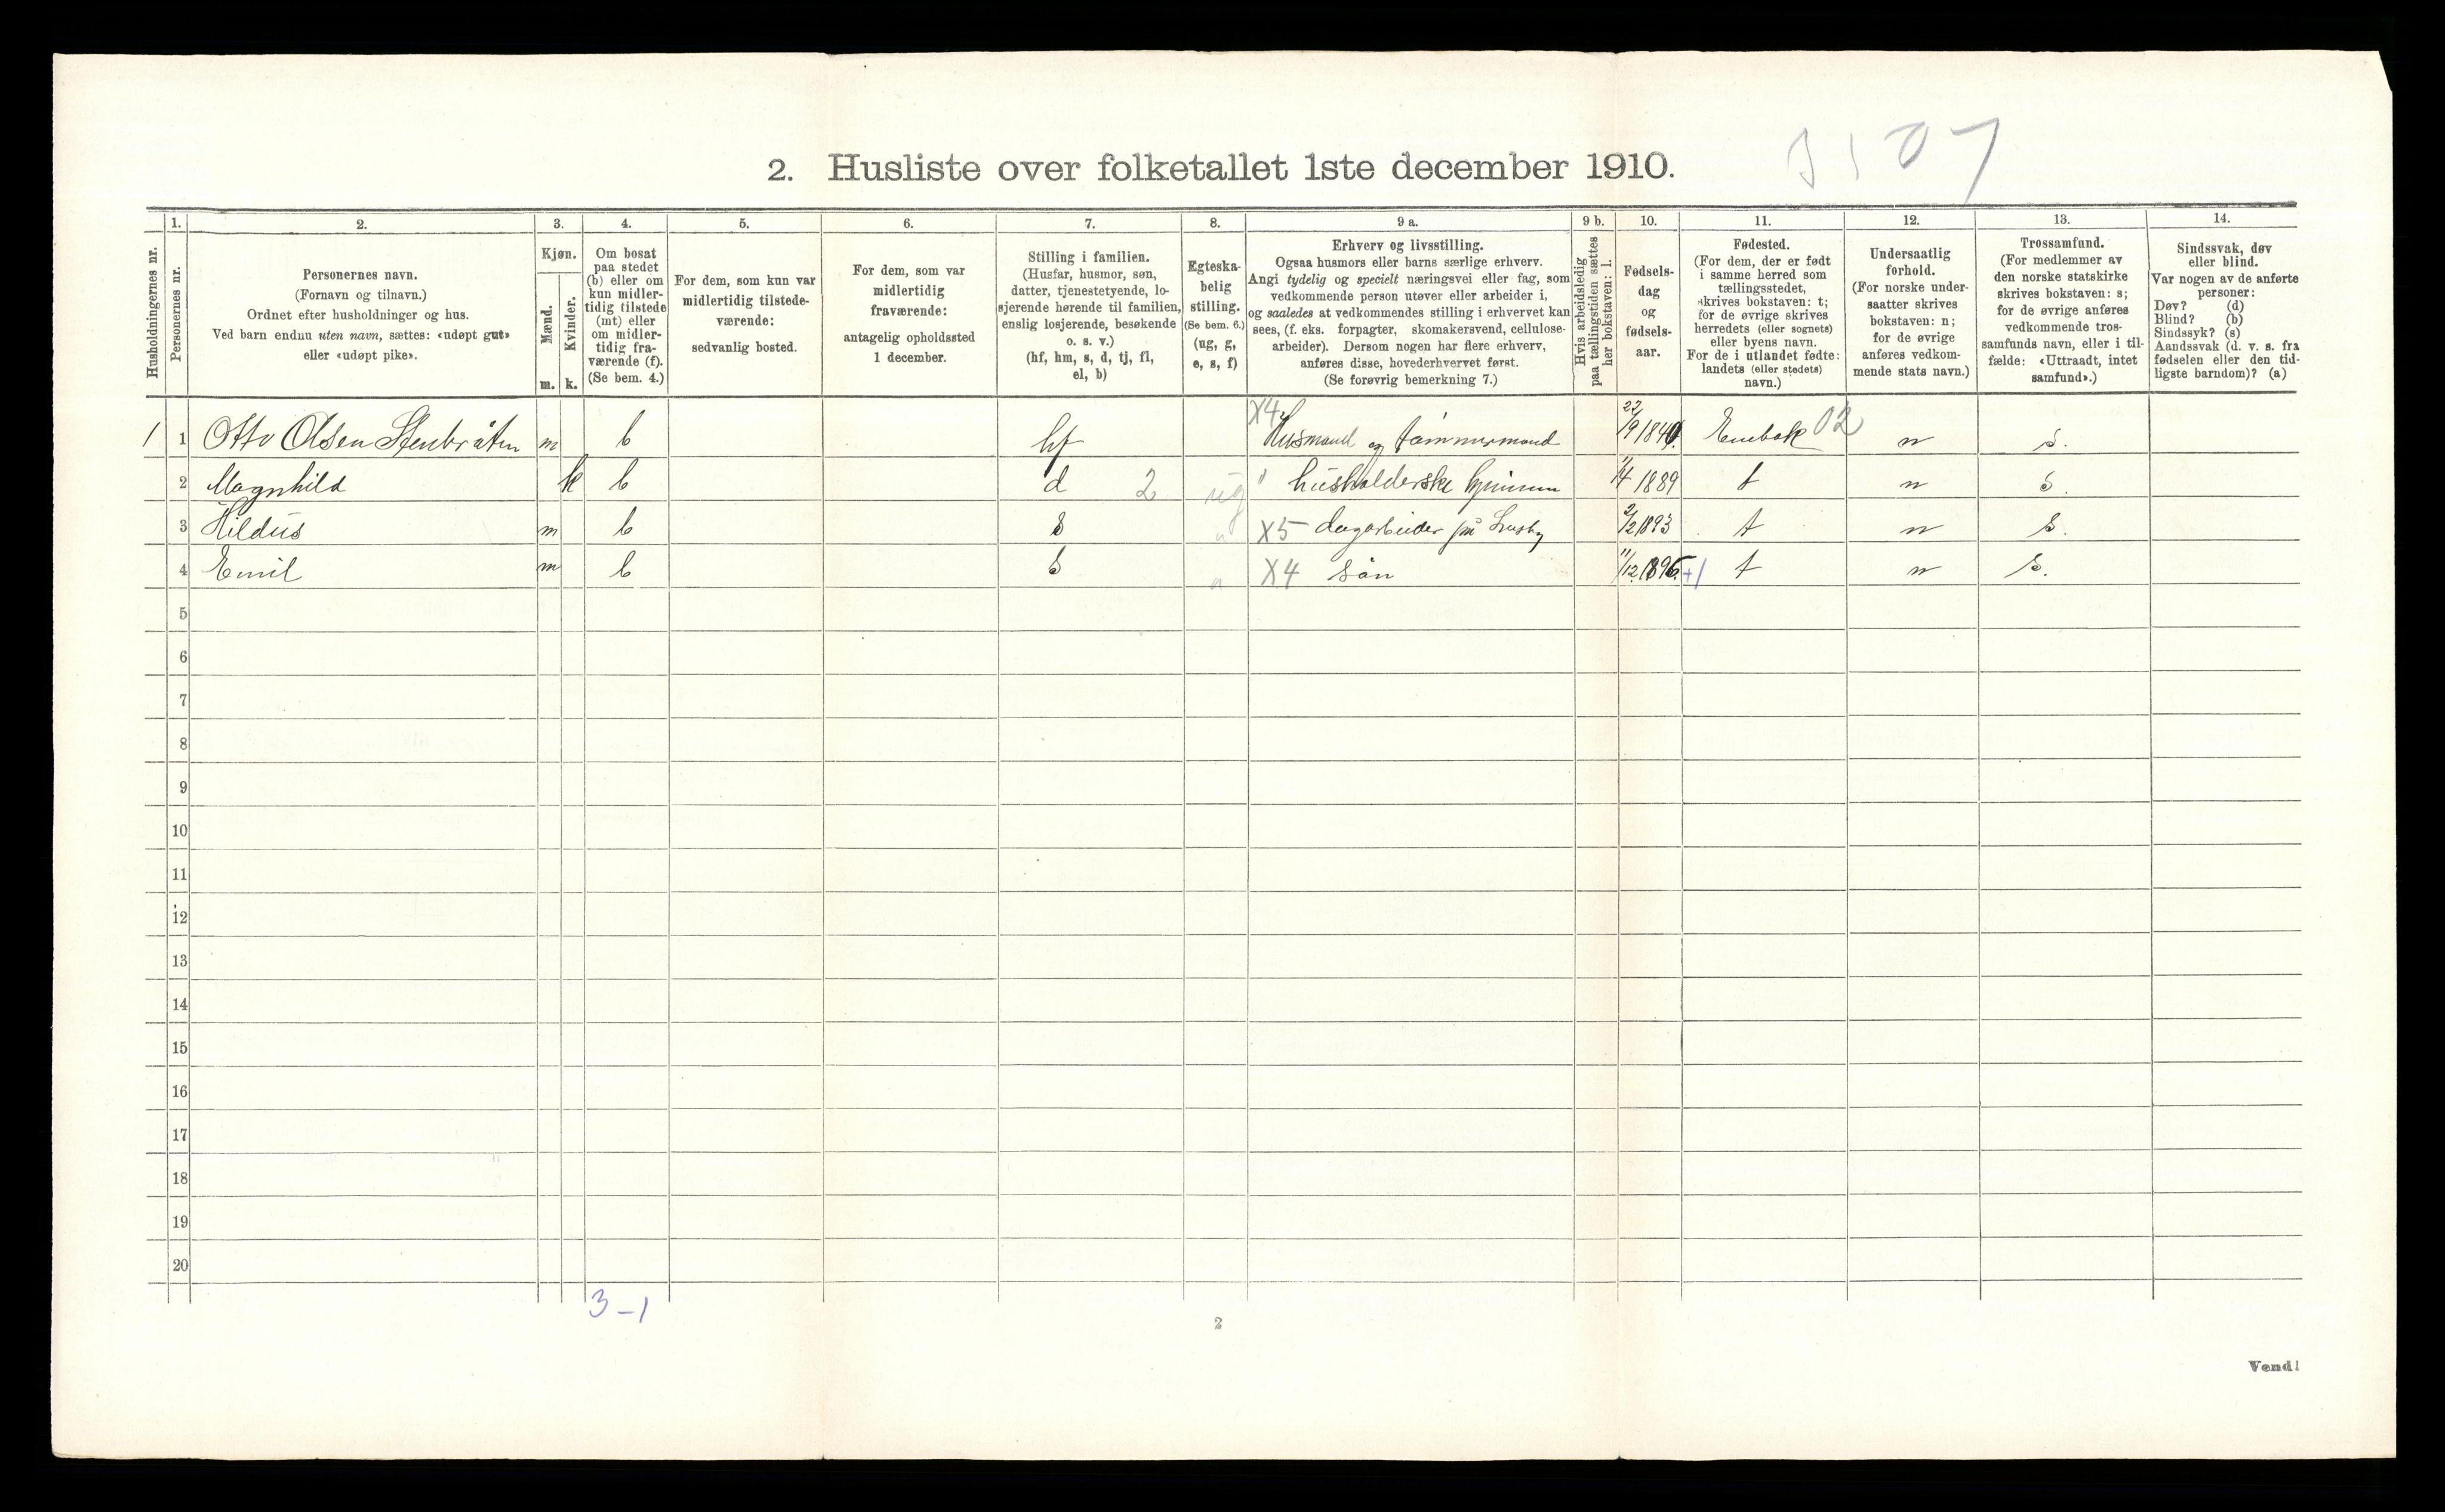 2. Husliste over folketallet 1ste december 1910.
Husholdningernes nr.
1.
Personernes nr.
2.
Personernes navn.
(Fornavn og tilnavn.)
Ordnet efter husholdninger og hus.
Ved barn endnu uten navn, sættes: «udøpt gut»
eller «udøpt pike».
3.
Kjøn.
Mænd.
Kvinder.
m. k.
4.
Om bosat
paa stedet
(b) eller om
kun midler-
tidig tilstede
(mt) eller
om midler-
tidig fra-
værende (f).
(Se bem. 4.)
5.
For dem, som kun var
midlertidig tilstede-
værende:
sedvanlig bosted.
6.
For dem, som var
midlertidig
fraværende:
antagelig opholdssted
1 december.
7.
Stilling i familien.
(Husfar, husmor, søn,
datter, tjenestetyende, lo-
sjerende hørende til familien,
enslig losjerende, besøkende
o. s. v.)
(hf, hm, s, d, tj, fl,
el, b)
8.
Egteska-
belig
stilling.
(Se bem. 6.)
(ug, g,
e, s, f)
9 a.
Erhverv og livsstilling.
Ogsaa husmors eller barns særlige erhverv.
Angi tydelig og specielt næringsvei eller fag, som
vedkommende person utøver eller arbeider i,
og saaledes at vedkommendes stilling i erhvervet kan
sees, (f. eks. forpagter, skomakersvend, cellulose-
arbeider). Dersom nogen har flere erhverv,
anføres disse, hovederhvervet først.
(Se forøvrig bemerkning 7.)
9 b.
Hvis arbeidsledig
paa tællingstiden sættes
her bokstaven: l.
10.
Fødsels-
dag
og
fødsels-
aar.
11.
Fødested.
(For dem, der er født
i samme herred som
tællingsstedet,
skrives bokstaven: t;
for de øvrige skrives
herredets (eller sognets)
eller byens navn.
For de i utlandet fødte:
landets (eller stedets)
navn.)
12.
Undersaatlig
forhold.
(For norske under-
saatter skrives
bokstaven: n;
for de øvrige
anføres vedkom-
mende stats navn.)
13.
Trossamfund.
(For medlemmer av
den norske statskirke
skrives bokstaven: s;
for de øvrige anføres
vedkommende tros-
samfunds navn, eller i til-
fælde: «Uttraadt, intet
samfund».)
14.
Sindssvak, døv
eller blind.
Var nogen av de anførte
personer:
Døv? (d)
Blind? (b)
Sindssyk? (s)
Aandssvak (d. v. s. fra
fødselen eller den tid-
ligste barndom)? (a)
1 1 Otto Olsen Stenbråten m b hf X4 Husmand og tømmermand 22/9 1840. Enebak 02 n s.
2 Magnhild k b d 2 ug " husholderske hjemme 1889 t n s.
3 Hildus m b s " X5 dagarbeider på 2/2 1893 t n s.
4 Emil m b s " X4 søn 11/12 1896. +1 t n s.
5
6
7
8
9
10
11
12
13
14
15
16
17
18
19
20
3-1
2
Vend!